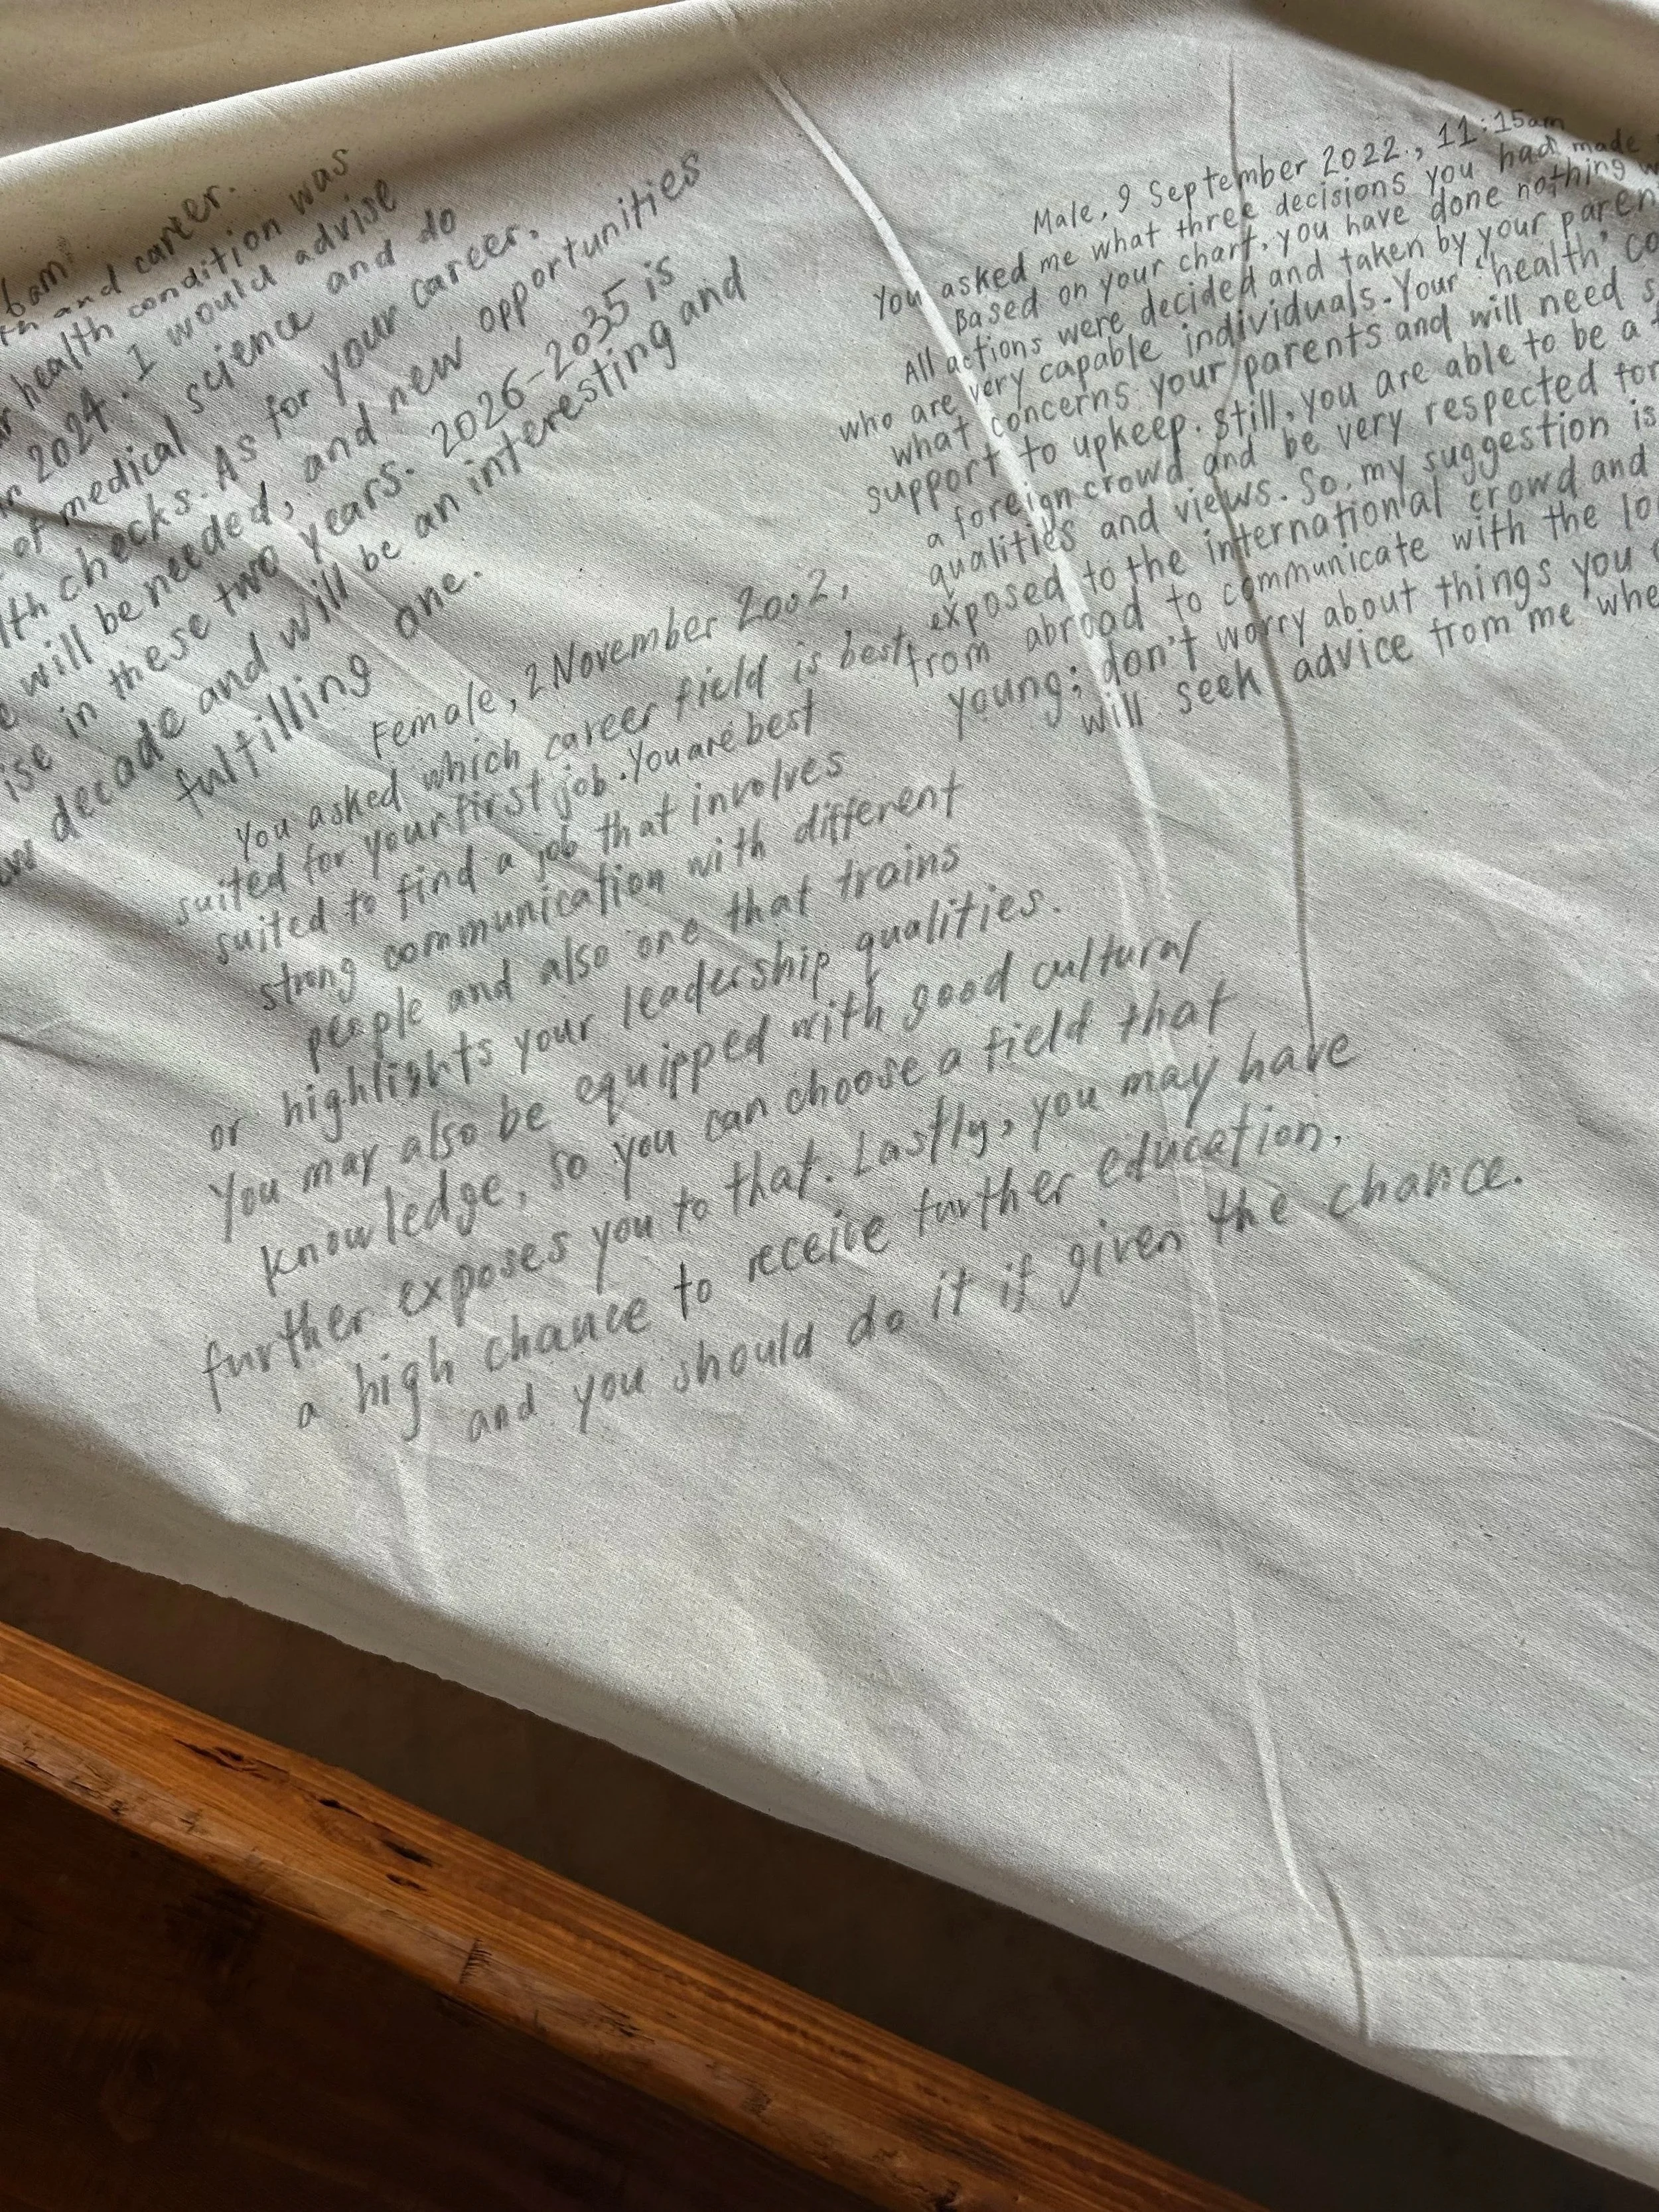 6am
th and career.
health condition was
2024. I would advise
of medical science and do
lth checks. As for your career,
will be needed, and new opportunities
ise in these two years. 2026-2035 is
decade and will be an interesting and
fulfilling one.
Female, 2 November 2002,
You asked which career field is best
suited for your first job. You are best
suited to find a job that involves
strong communication with different
people and also one that trains
or highlights your leadership qualities.
You may also be equipped with good cultural
knowledge, so you can choose a field that
further exposes you to that. Lastly, you may have
a high chance to receive further education,
and you should do it if given the chance.
Male, 9 September 2022., 11:15am
You asked me what three decisions you had made
Based on your chart, you have done nothing
All actions were decided and taken by your paren
who are very capable individuals. Your 'health' co
what concerns your parents and will need s
support to upkeep. Still, you are able to be a
a foreign crowd and be very respected for
qualities and views. So, my suggestion is
exposed to the international crowd and
from abroad to communicate with the lo
young; don't worry about things you
will seek advice from me whe